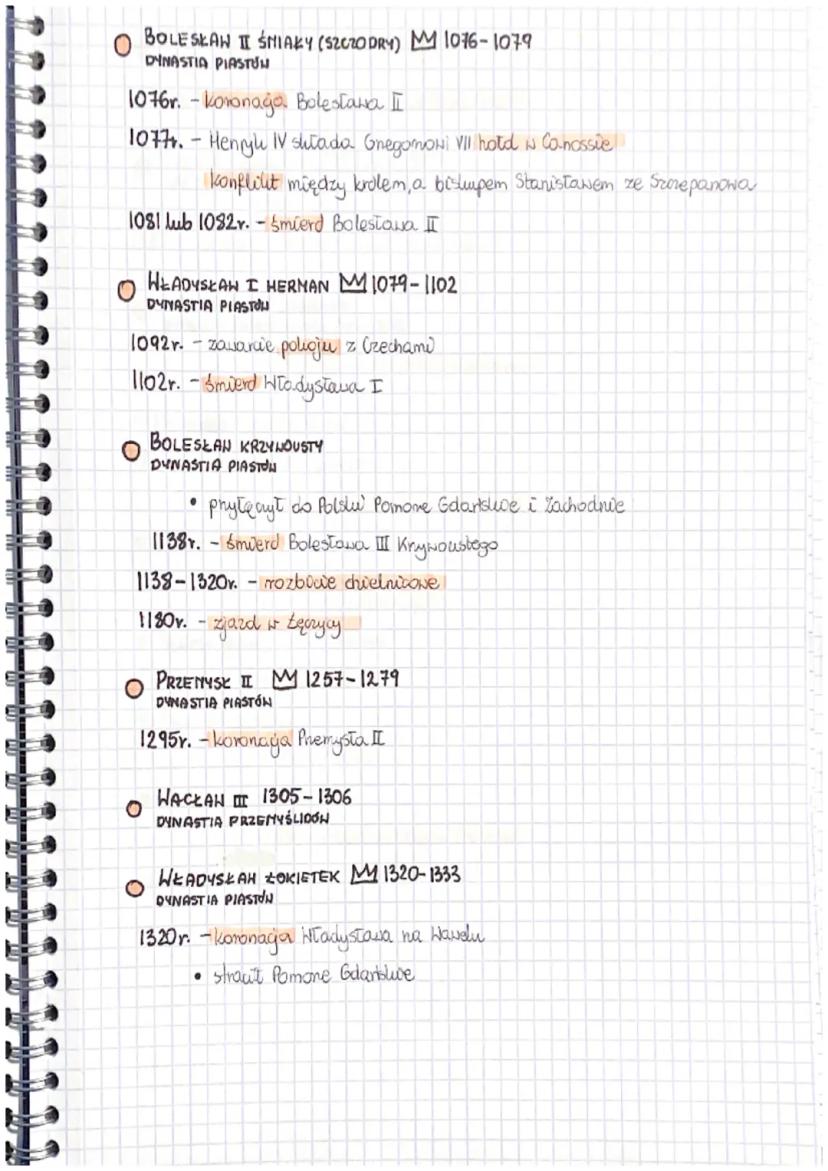 BOLESŁAW II ŚMIAŁY (SZCZODRY) 1076-1079
DYNASTIA PIASTÓW
1076r. - koronacja Bolesława II
1077r. - Henryk IV składa Gregorzowi VII hołd w Canossie
konflikt między królem, a biskupem Stanisławem ze Szczepanowa
1081 lub 1082r. - śmierć Bolesława II
WŁADYSŁAW I HERMAN 1079-1102
DYNASTIA PIASTÓW
1092r. - zawarcie pokoju z Czechami
1102r. - śmierć Władysława I
BOLESŁAW KRZYWOUSTY
DYNASTIA PIASTÓW
• przyłączył do Polski Pomorze Gdańskie i Zachodnie
1138r. - śmierć Bolesława III Krzywoustego
1138-1320r. - rozbicie dzielnicowe
1180r. - zjazd w Łęczycy
PRZEMYSŁ II 1257-1279
DYNASTIA PIASTÓW
1295r. - koronacja Przemysła II
WACŁAW III 1305-1306
DYNASTIA PRZEMYŚLIDÓW
WŁADYSŁAW ŁOKIETEK 1320-1333
DYNASTIA PIASTÓW
1320r. - koronacja Władysława na Wawelu
• stracił Pomorze Gdańskie